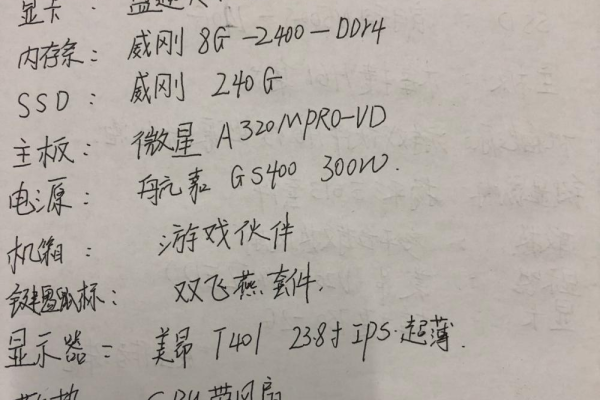 显卡:
内存条: 威刚 8G-2400-DDR4
SSD: 威刚 240G
主板: 微星 A320MPRO-VD
电源: 航嘉 GS400 300W.
机箱: 游戏伙伴
键盘鼠标: 双飞燕套件.
显示器: 美昂 T401 23.8寸 IPS.超薄.
CPU 带风扇